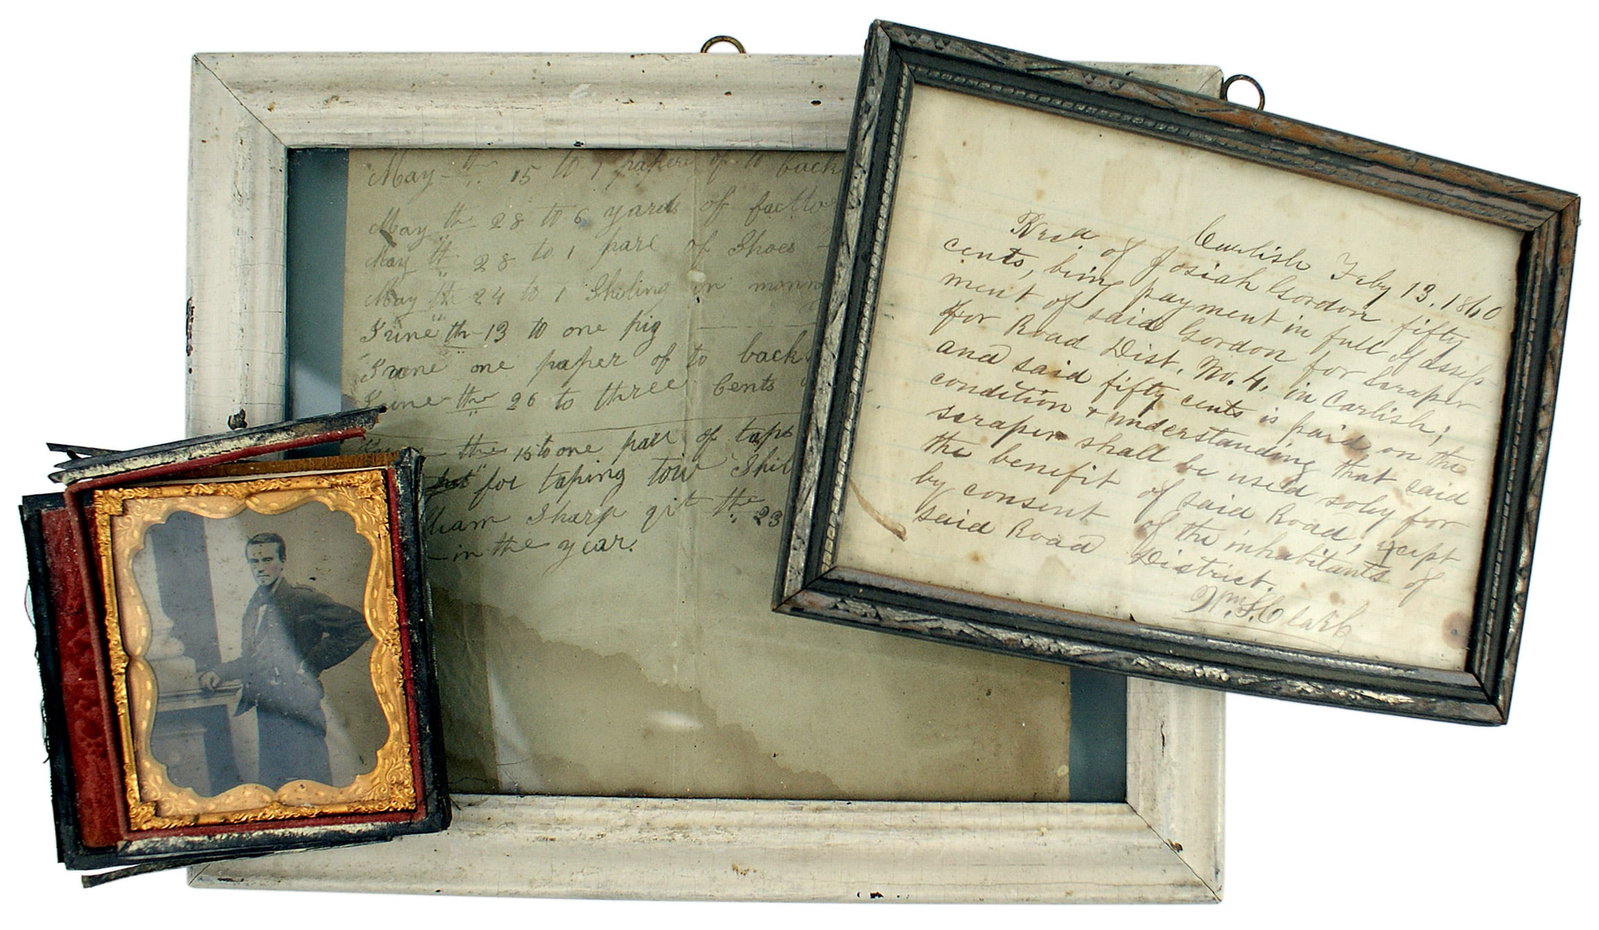 May th 15 to 1 papere of to back
May th 28 to 6 yards of facttor
May th 28 to 1 pare of Shoes
May th 24 to 1 Shiling in monny
June th 13 to one pig
June one paper of to back
June the 26 to three Cents
the 15 to one pare of taps
for taping tow Shil
Sharp git the 23
in the year.
Carlish Feby 13. 1860
Recd of Josiah Gordon fifty
cents, bing payment in full of assess
ment of said Gordon for Scraper
for Road Dist. No. 4. in Carlish;
and said fifty cents is paid on the
condition & understanding that said
scraper shall be used soly for
the benefit of said Road, exept
by consent of the inhabitants of
said Road District.
Wm. F. Clark